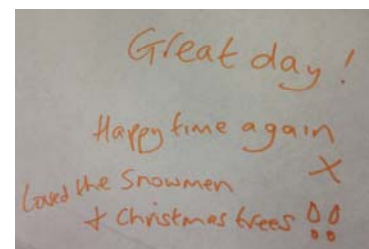 Great day!
Happy time again
X
Loved the Snowmen
+ Christmas trees !!